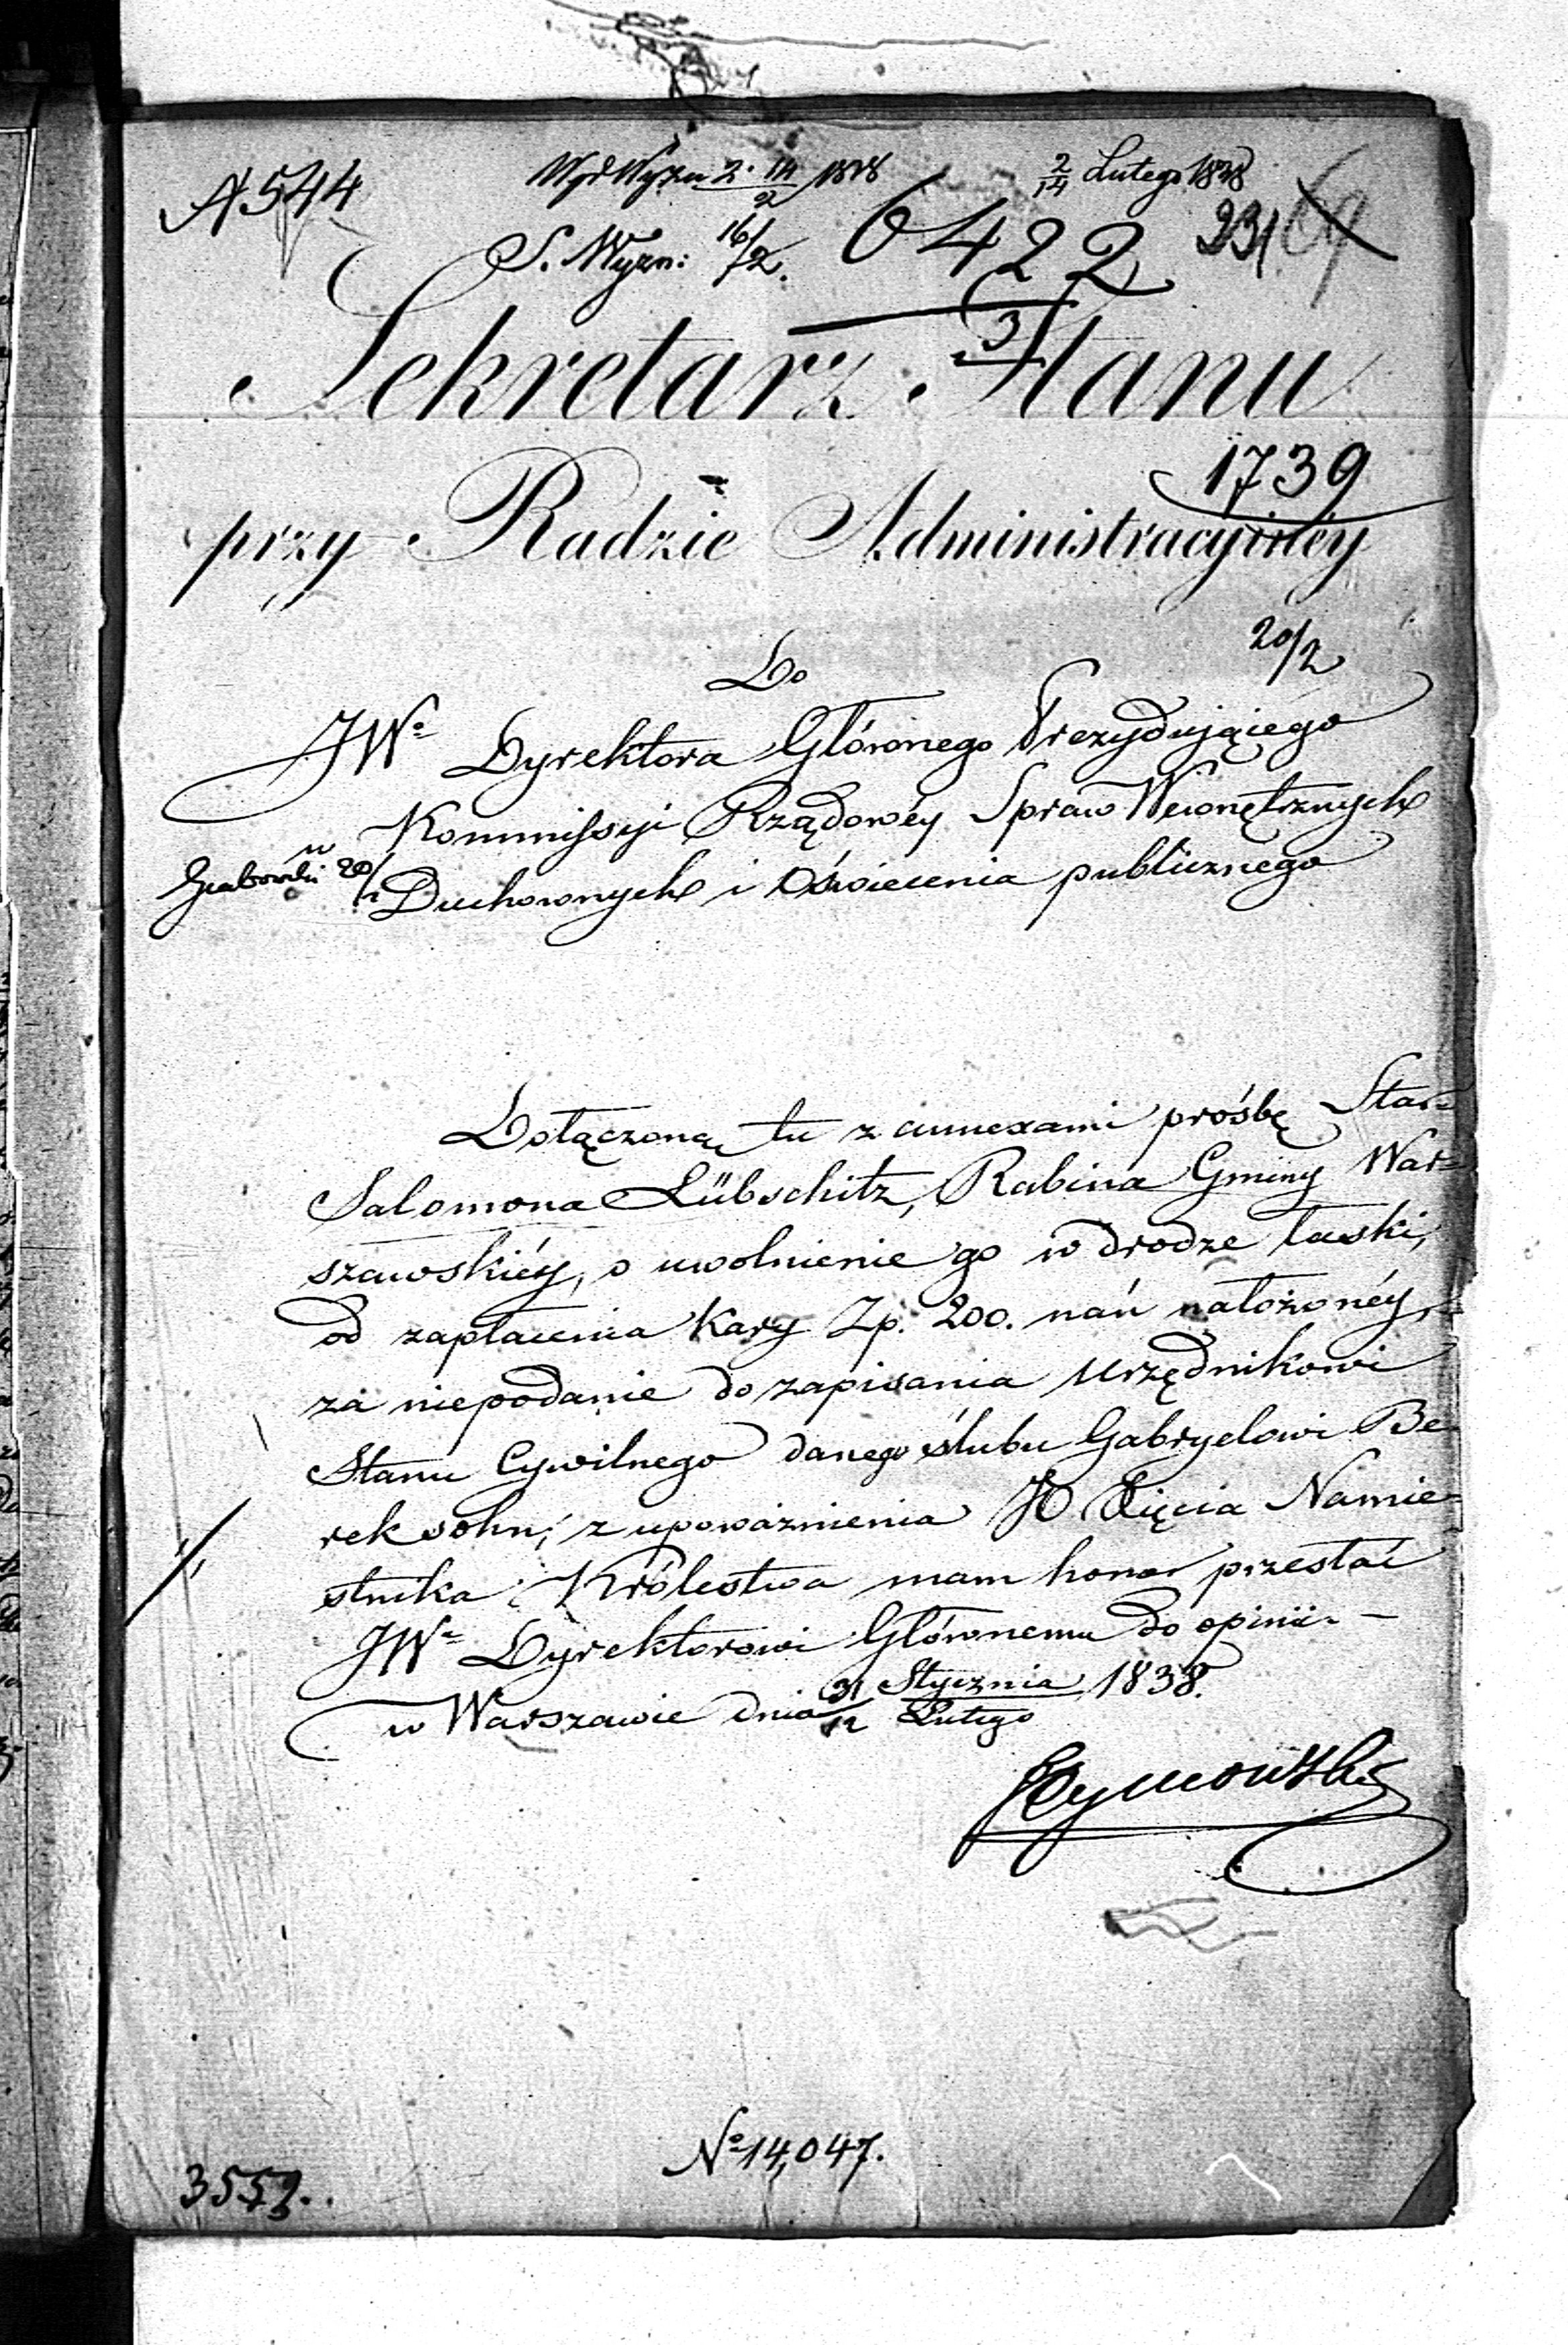 A 544
2/14 Lutego 1838
S. Wyzn: 16/2.
6422
231
3
Sekretarz Stanu
1739
przy Radzie Administracyjnéy
20/2
Do
JWo Dyrektora Głównego Prezydującego
Kommissyi Rządowéy Spraw Wewnętrznych
Duchownych i Oświecenia publicznego
Grabowski 20/2
Dołączoną tu z annexami prośbę Star=
Salomona Lübschitz, Rabina Gminy War=
szawskiéy, o uwolnienie go w drodze łaski,
od zapłacenia Kary Zp. 200. nań nałożonéy,
za niepodanie do zapisania Urzędnikowi
Stanu Cywilnego danego ślubu Gabryelowi Be
reksohn, z upoważnienia JO Xięcia Namie=
stnika Królestwa mam honor przesłać
JWo Dyrektorowi Głównemu do opinii. —
w Warszawie dnia 31/12 Stycznia/Lutego 1838.
Tymowski
No 14,047.
3553.